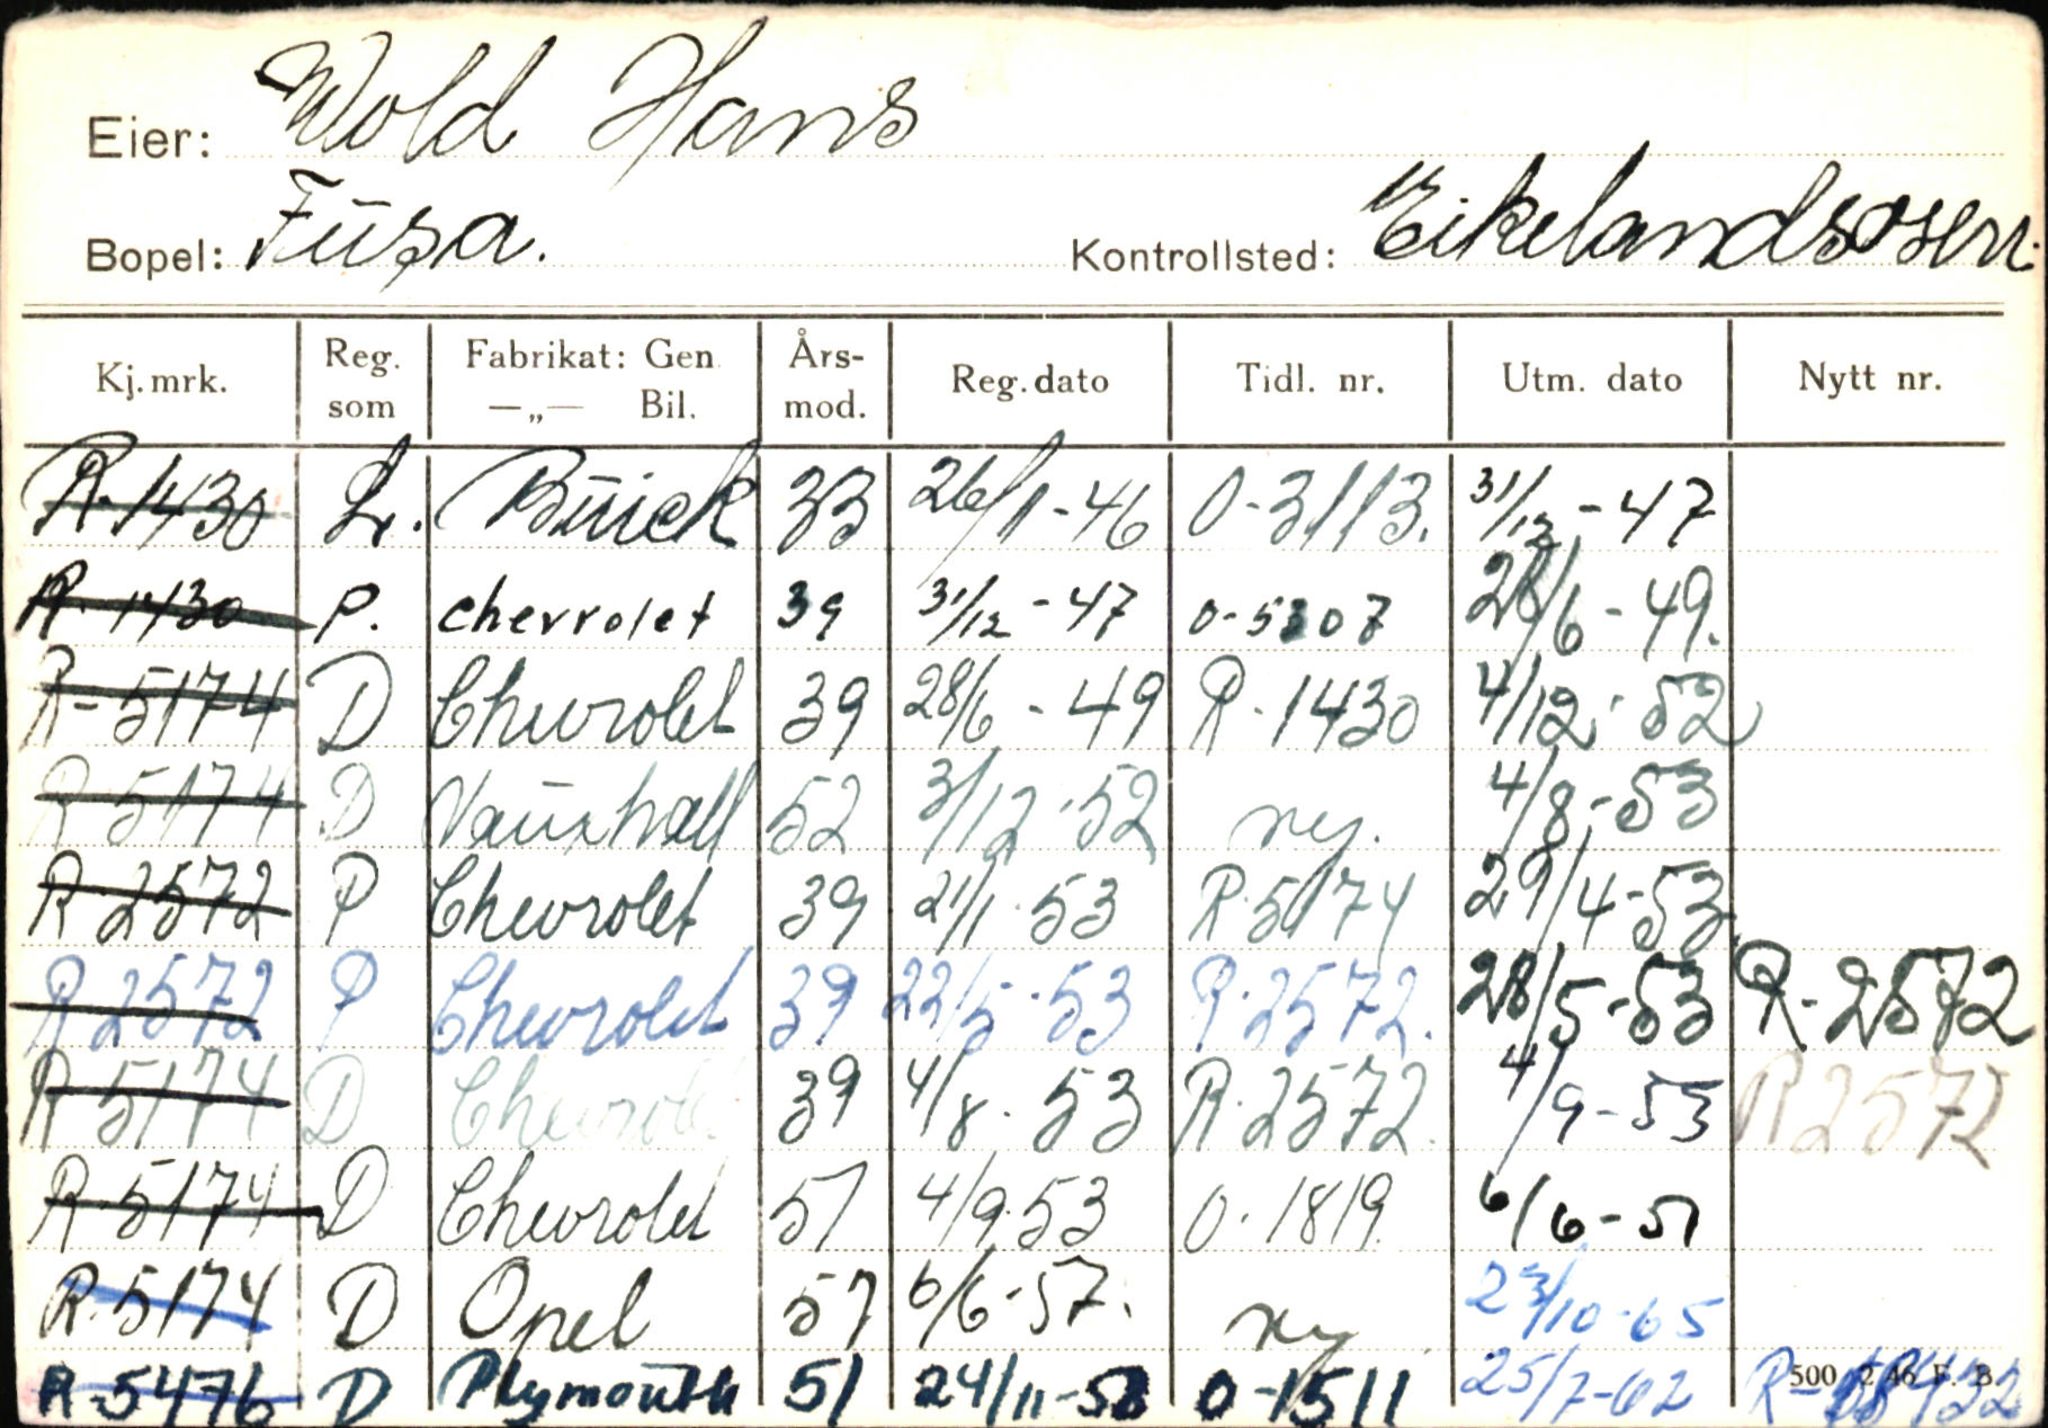 Eier: Wold Hans
Bopel: Fusa. Kontrollsted: Eikelandsosen.
Kj.mrk. Reg. som Fabrikat: Gen. —„— Bil. Års-mod. Reg.dato Tidl. nr. Utm. dato Nytt nr.
R-1430 L. Buick 33 26/1-46 O-3113. 31/12-47
R-1430 P. Chevrolet 39 31/12-47 O-5307 28/6-49.
R-5174 D Chevrolet 39 28/6-49 R-1430 4/12-52
R 5174 D Vauxhall 52 3/12-52 ny. 4/8-53
R 2572 P Chevrolet 39 21/1-53 R-5174 29/4-53
R 2572 P Chevrolet 39 22/5-53 R-2572. 28/5-53 R-2572
R 5174 D Chevrolet 39 4/8-53 R-2572. 4/9-53 R 2572
R 5174 D Chevrolet 51 4/9-53 O-1819 6/6-57
R.5174 D Opel 57 6/6-57. ny 23/10-65
R-5476 D Plymouth 51 24/11-58 O-1511 25/7-62
500 2 46 F. B.